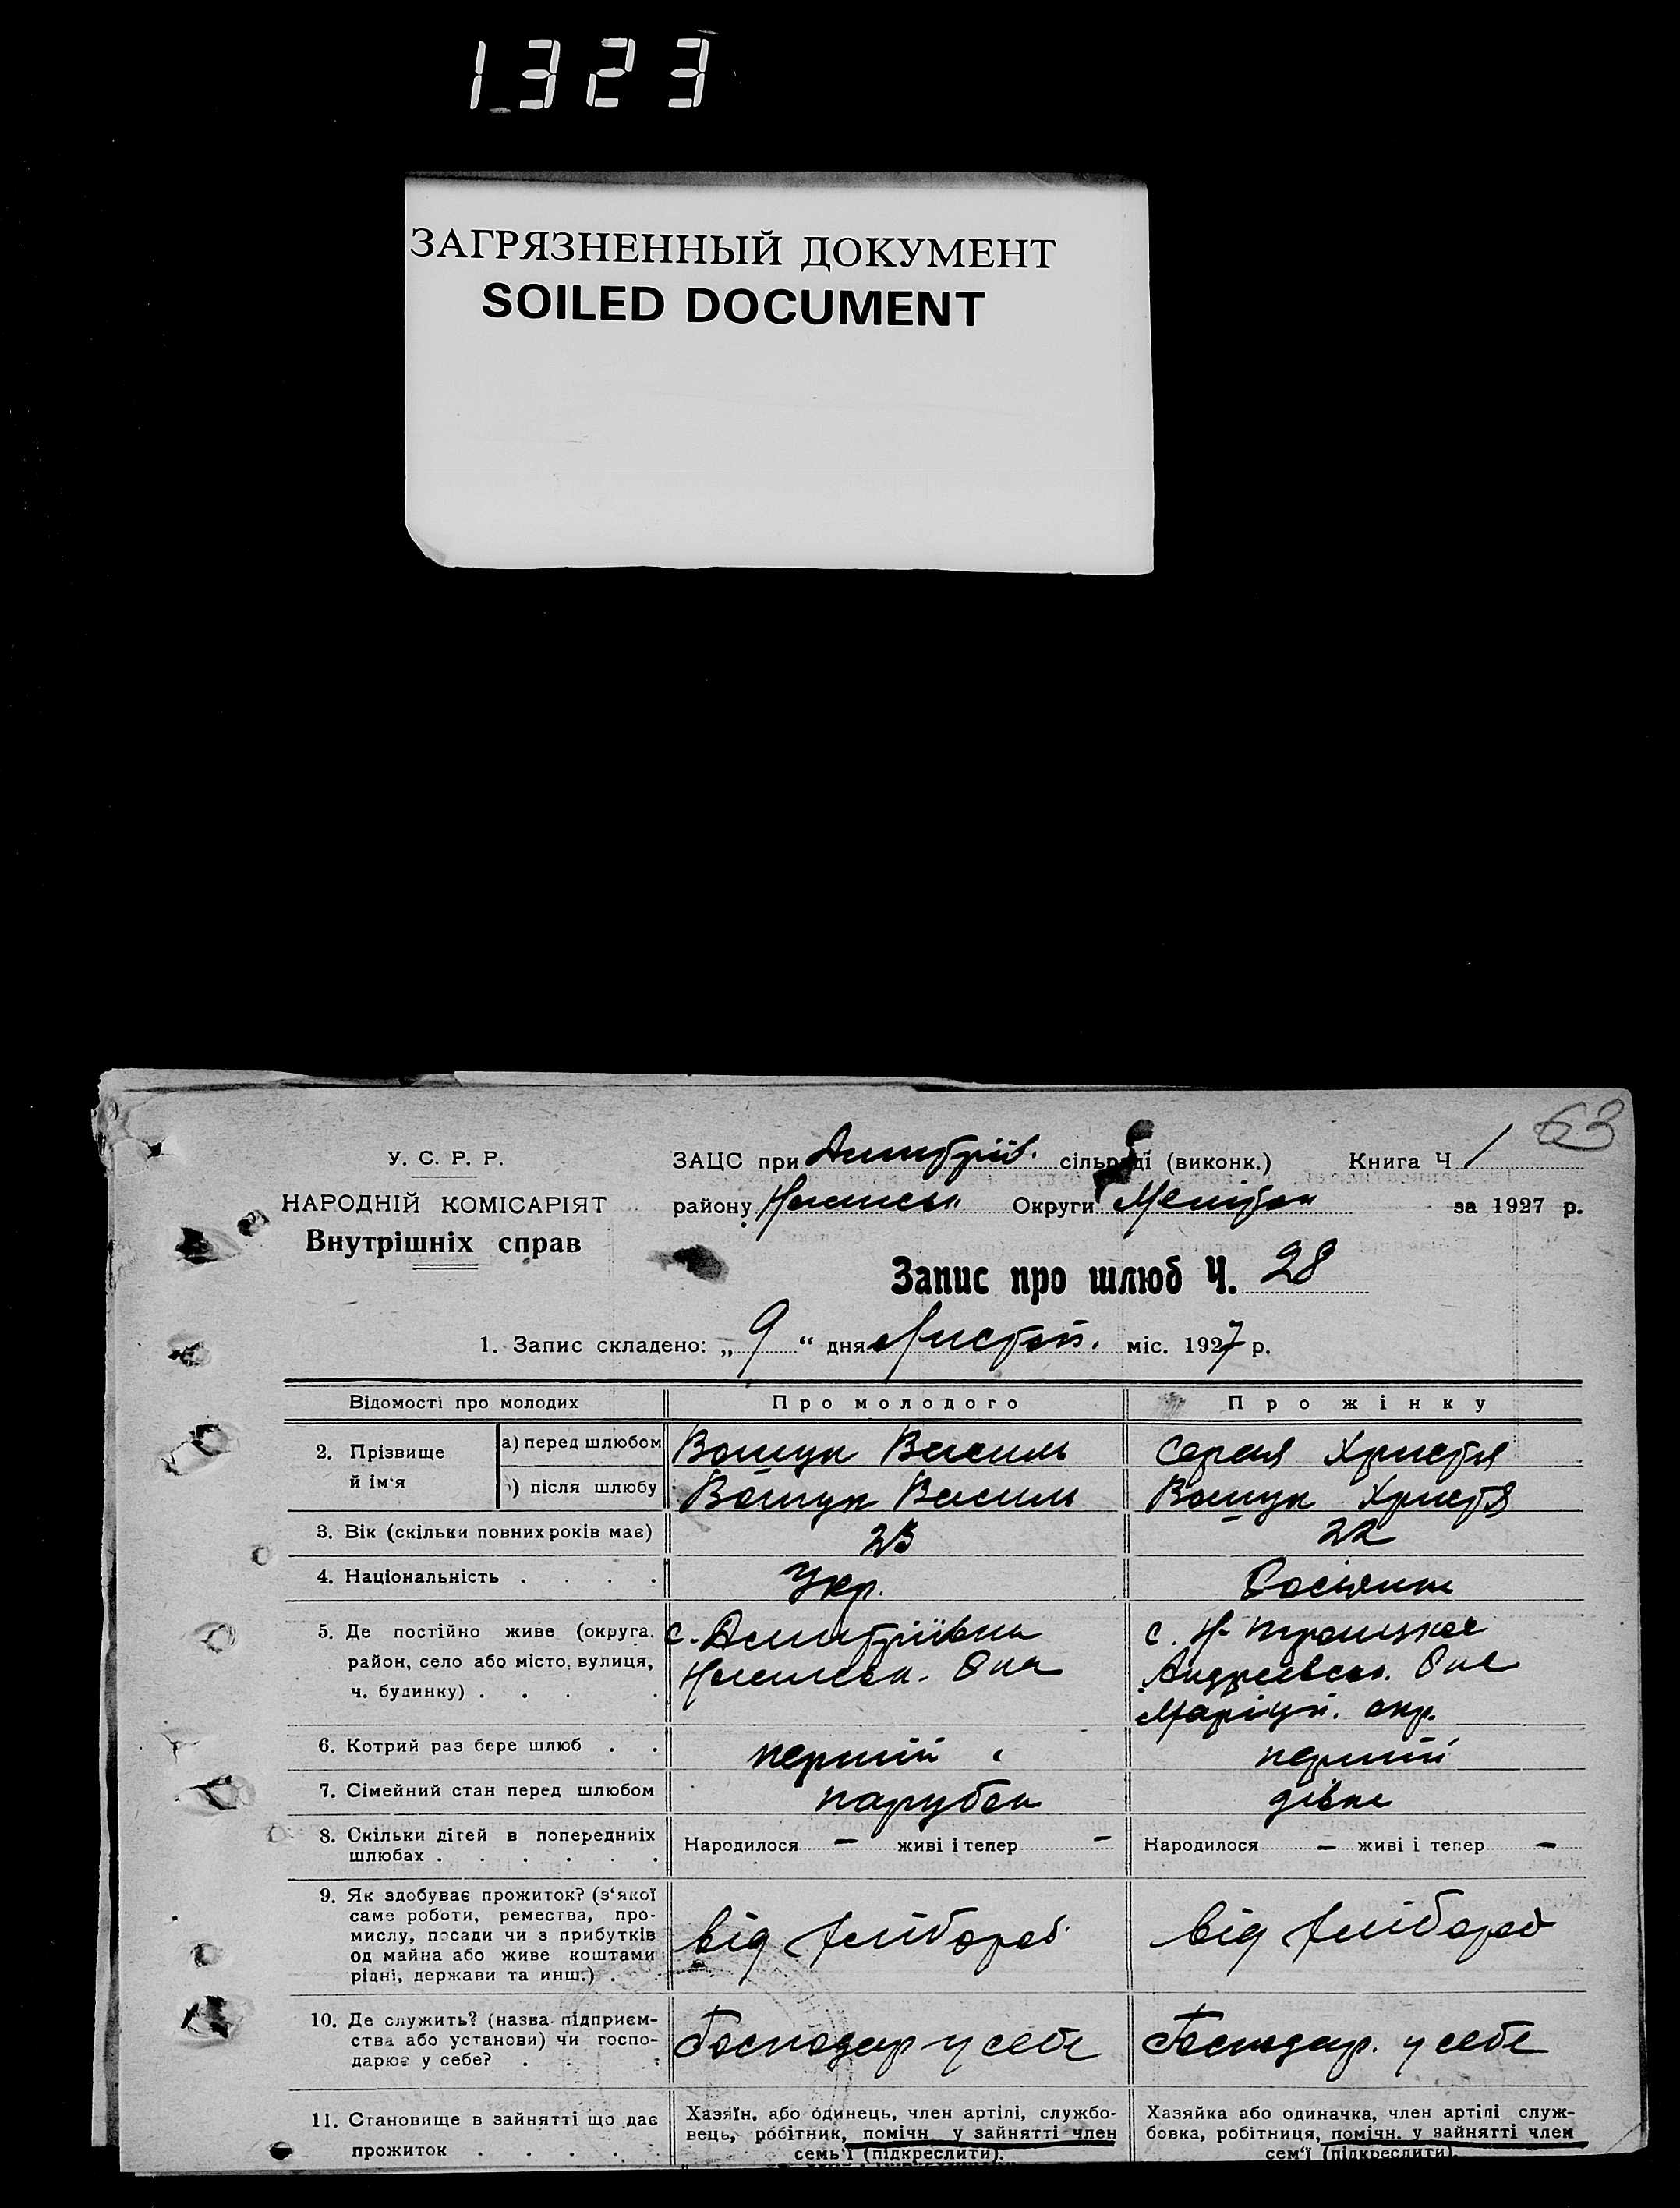 1323
ЗАГРЯЗНЕННЫЙ ДОКУМЕНТ
SOILED DOCUMENT
63
У. С. Р. Р.
НАРОДНІЙ КОМІСАРІЯТ
Внутрішніх справ
ЗАЦС при Дмитрїв. сільраді (виконк.) Книга Ч 1
району Округи за 1927 р.
Запис про шлюб Ч. 28
1. Запис складено: „ 9 “ дня Листоп. міс. 1927 р.
Відомості про молодих Про молодого Про жінку
2. Прізвище й ім‘я
а) перед шлюбом Вощук Василь Серая Христя
) після шлюбу Вощук Василь Вощук Христя
3. Вік (скільки повних років має) 23 22
4. Національність . . . . Укр. Росіянка
5. Де постійно живе (округа, район, село або місто, вулиця, ч. будинку) . . . .
с. Дмитріївка
с. Н-Троицкое
Андреевск. Маріуп. окр.
6. Котрий раз бере шлюб . . перший перший
7. Сімейний стан перед шлюбом парубок дівка
8. Скільки дітей в попередниіх шлюбах . . . . . .
Народилося — живі і тепер —
Народилося — живі і тепер —
9. Як здобуває прожиток? (з‘якої
саме роботи, ремества, про-
мислу, посади чи з прибутків
од майна або живе коштами
рідні, держави та инш.) .
від хлібороб від хлібороб
10. Де служить? (назва підприєм-
ства або установи) чи госпо-
дарює у себе? . . .
Господар у себе Господар. у себе
11. Становище в зайнятті що дає
прожиток . . . . .
Хазяїн, або одинець, член артілі, службо-
вець, робітник, помічн у зайнятті член
семь‘ї (підкреслити).
Хазяйка або одиначка, член артілі служ-
бовка, робітниця, помічн. у зайнятті член
сем‘ї (підкреслити).